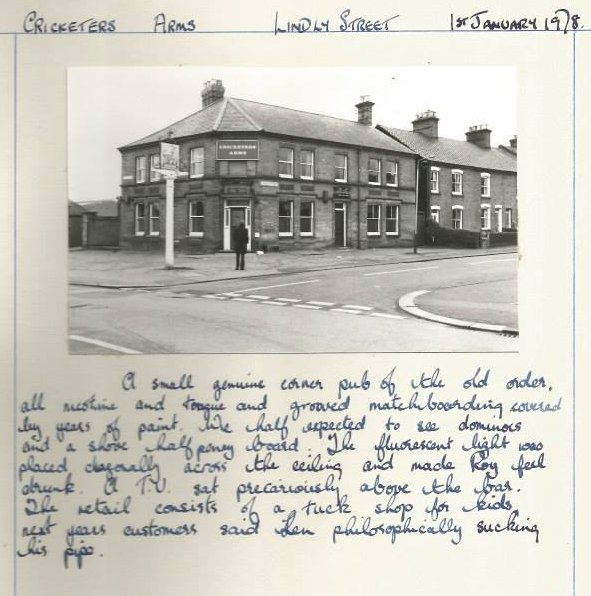 CRICKETERS ARMS LINDLY STREET 1ST JANUARY 1978.
CRICKETERS
ARMS
A small genuine corner pub of the old order,
all nicotine and tongue and grooved matchboarding covered
by years of paint. We half expected to see dominoes
and a shove halfpeney board. The fluorescent light was
placed diagonally across the ceiling and made Roy feel
drunk. A T.V. sat precariously above the bar.
The retail consists of a tuck shop for kids,
next years customers said Len philosophically sucking
his pipe.